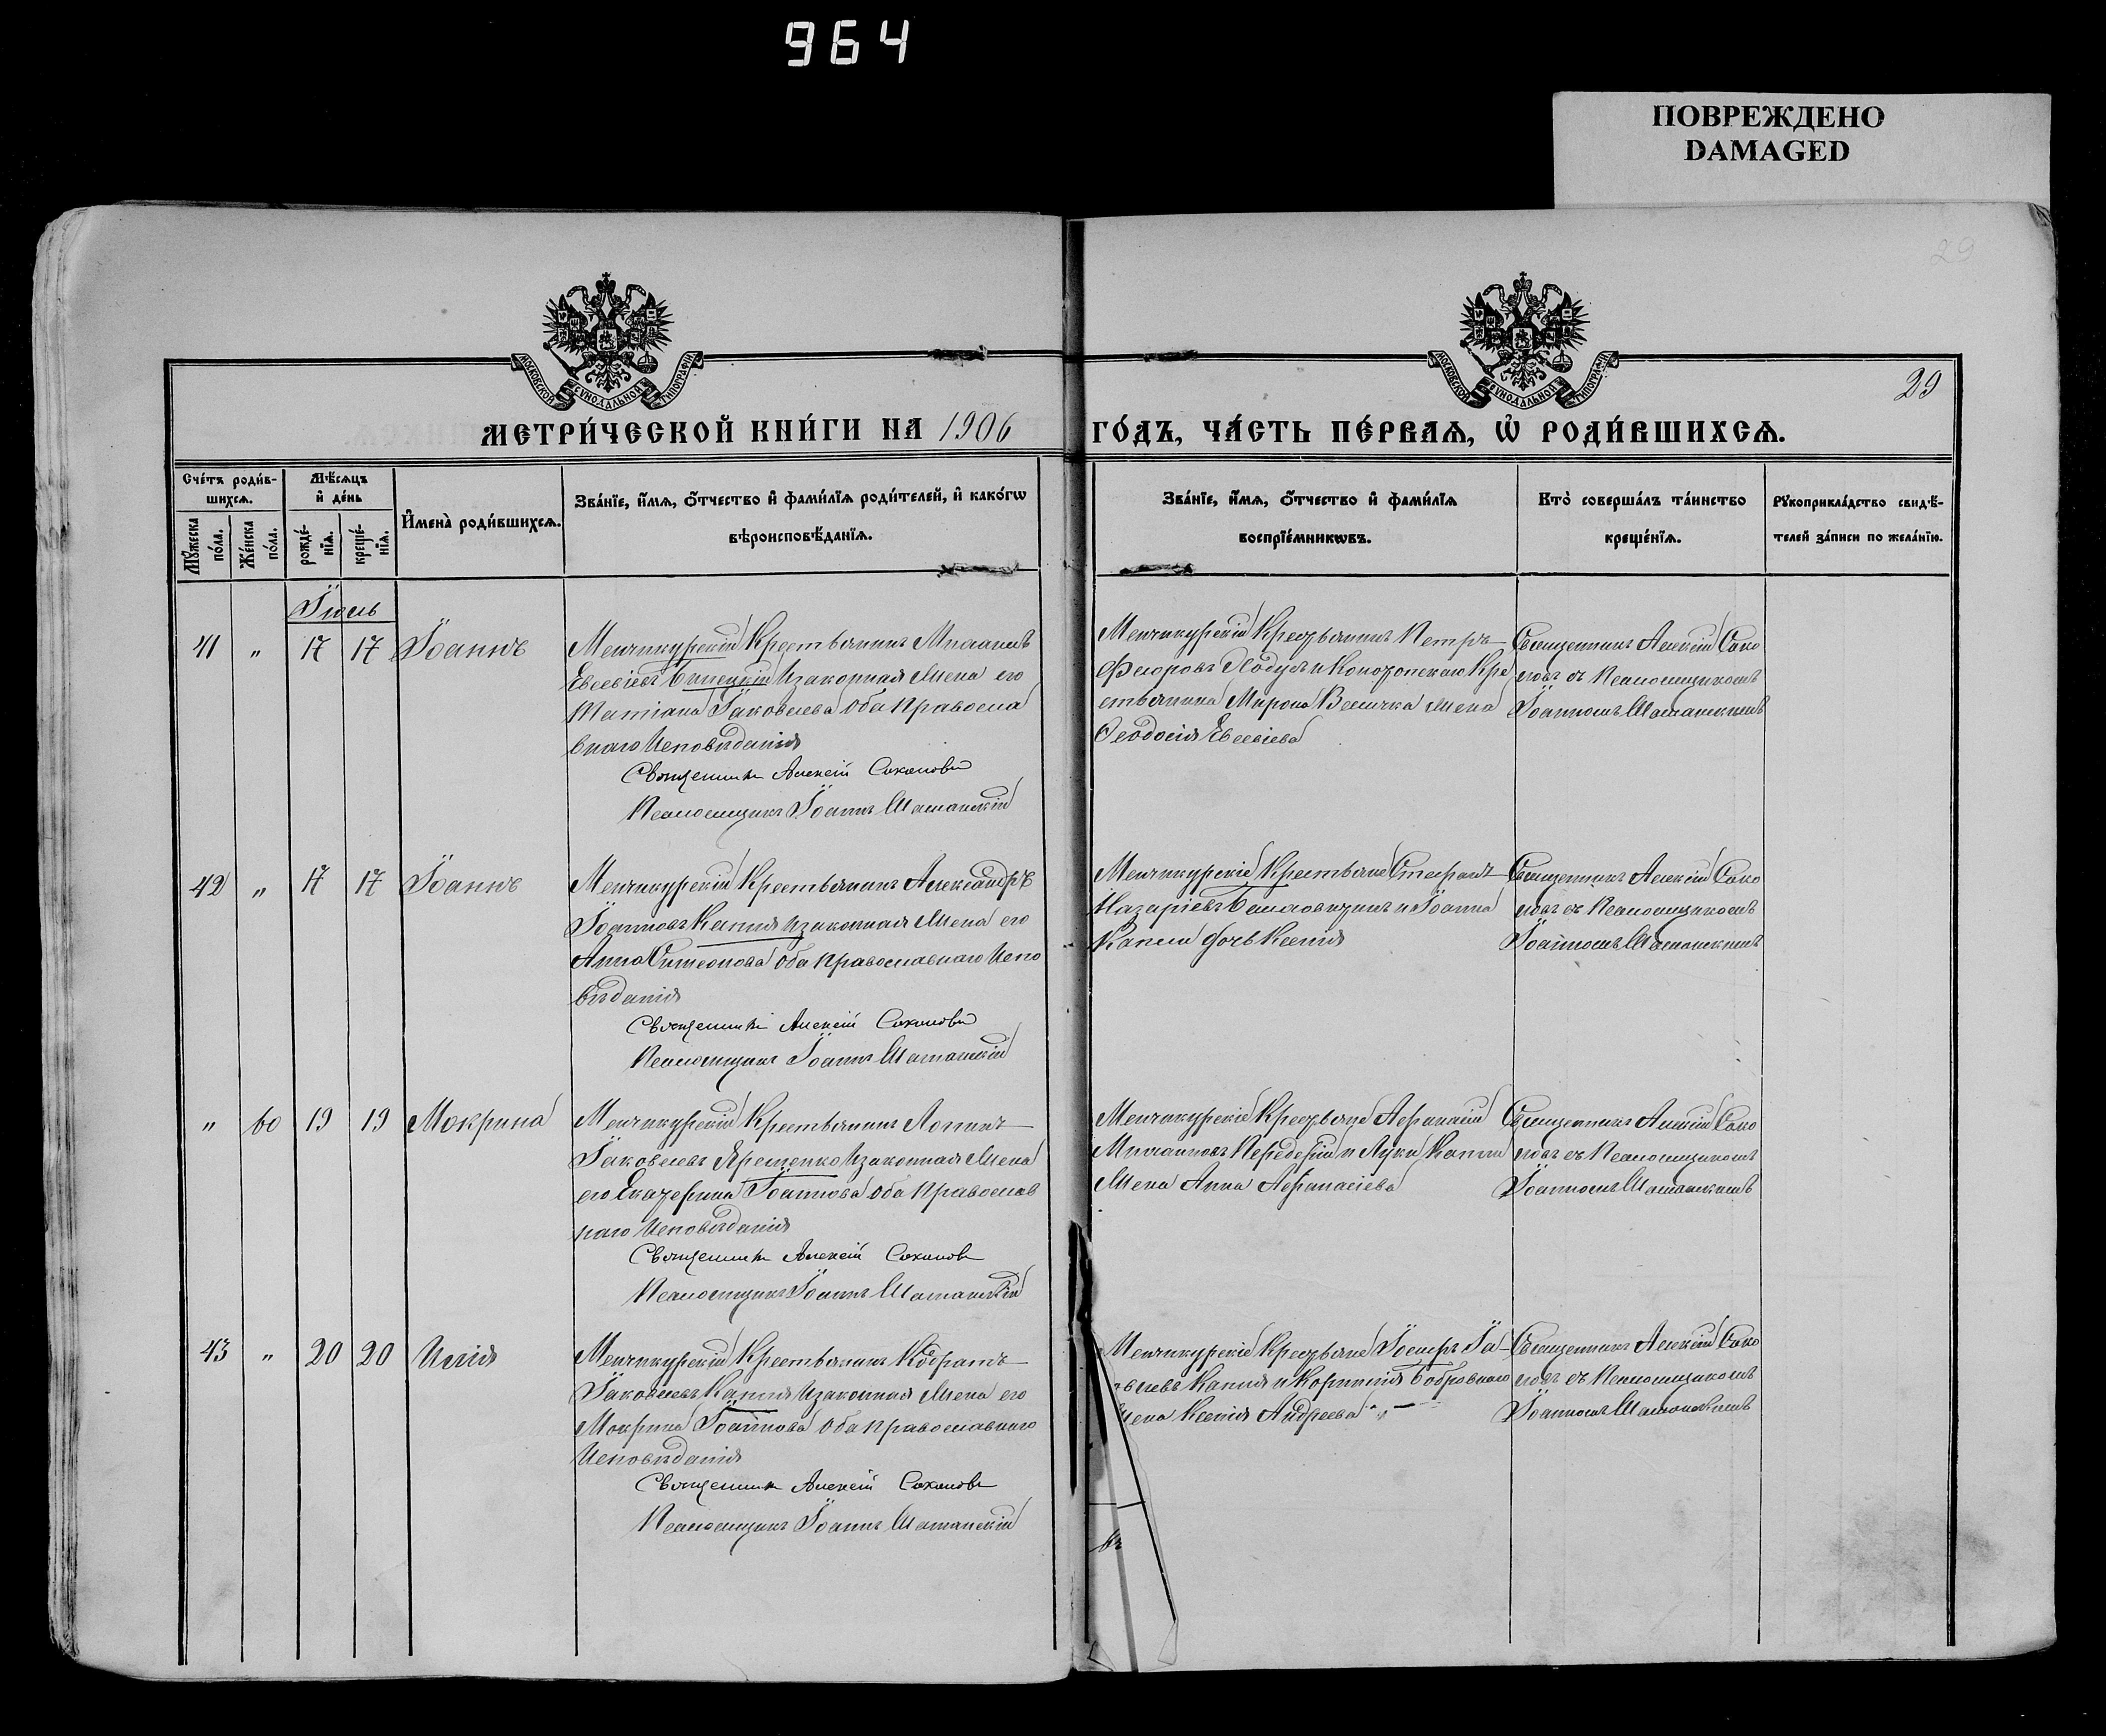 964
ПОВРЕЖДЕНО
DAMAGED
29
МОСКОВСКОЙ СѴНОДАЛЬНОЙ ТИПОГРАФІИ
МОСКОВСКОЙ СѴНОДАЛЬНОЙ ТИПОГРАФІИ
29
МЕТРИ́ЧЕСКОЙ КНИ́ГИ НА 1906 ГО́ДЪ, ЧА́СТЬ ПЕ́РВАѦ, Ѡ҆ РОДИ́ВШИХСѦ.
Сче́тъ роди́в-
шихсѧ.
Мꙋ́жеска
по́ла.
Же́нска
по́ла.
Мѣ́сѧцъ
и҆ де́нь
рожде́-
нїѧ.
креще́-
нїѧ.
И҆мена̀ роди́вшихсѧ.
Зва́нїе, и҆́мѧ, ѻ҆́тчество и҆ фами́лїѧ роди́телей, и҆ како́гѡ
вѣроисповѣ́данїѧ.
Зва́нїе, и҆́мѧ, ѻ҆́тчество и҆ фами́лїѧ
воспрїе́мникѡвъ.
Кто̀ соверша́лъ та́инство
креще́нїѧ.
Рꙋкоприкла́дство свидѣ́-
телей за́писи по жела́нїю.
Іюль
41 " 17 17 Іоаннъ
Менчикурскій Крестьянинъ Михаилъ
Евсевіевъ Билецкій и законная жена его
Татіана Іаковлева оба Правосла
внаго Исповѣданія
Священникъ Алексій Соколовъ
Псаломщикъ Іоаннъ
Менчикурскій Крестьянинъ Петръ
Феодоровъ и Конотопскаго Кре
стьянина Мирона Величка жена
Феодосія Евсевіева
Священникъ Алексій Соко
ловъ съ Псаломщикомъ
Іоанномъ
42 " 17 17 Іоаннъ
Менчикурскій Крестьянинъ Александръ
Іоанновъ Капля и законная жена его
Анна Симеонова оба Православнаго Испо
вѣданія
Священникъ Алексій Соколовъ
Псаломщикъ Іоаннъ
Менчикурскіе Крестьяне Стефанъ
Назаріевъ и Іоанна
Капли дочь Ксенія
Священникъ Алексій Соко
ловъ съ Псаломщикомъ
Іоанномъ
" 60 19 19 Мокрина
Менчикурскій Крестьянинъ Логинъ
Іаковлевъ Яременко и законная жена
его Екатерина Іоаннова оба Православ
наго Исповѣданія
Священникъ Алексій Соколовъ
Псаломщикъ Іоаннъ
Менчикурскіе Крестьяне Афанасій
Михаиловъ Передерій и Луки Капли
жена Анна Афанасіева
Священникъ Алексій Соко
ловъ съ Псаломщикомъ
Іоанномъ
43 " 20 20 Илія
Менчикурскій Крестьянинъ Кодратъ
Іаковлевъ Капля и законная жена его
Мокрина Іоаннова оба Православнаго
Исповѣданія
Священникъ Алексій Соколовъ
Псаломщикъ Іоаннъ
Менчикурскіе Крестьяне Іосифъ Іа
ковлевъ Капля и Корнилія Бобровнаго
жена Ксенія Андреева
Священникъ Алексій Соко
ловъ съ Псаломщикомъ
Іоанномъ